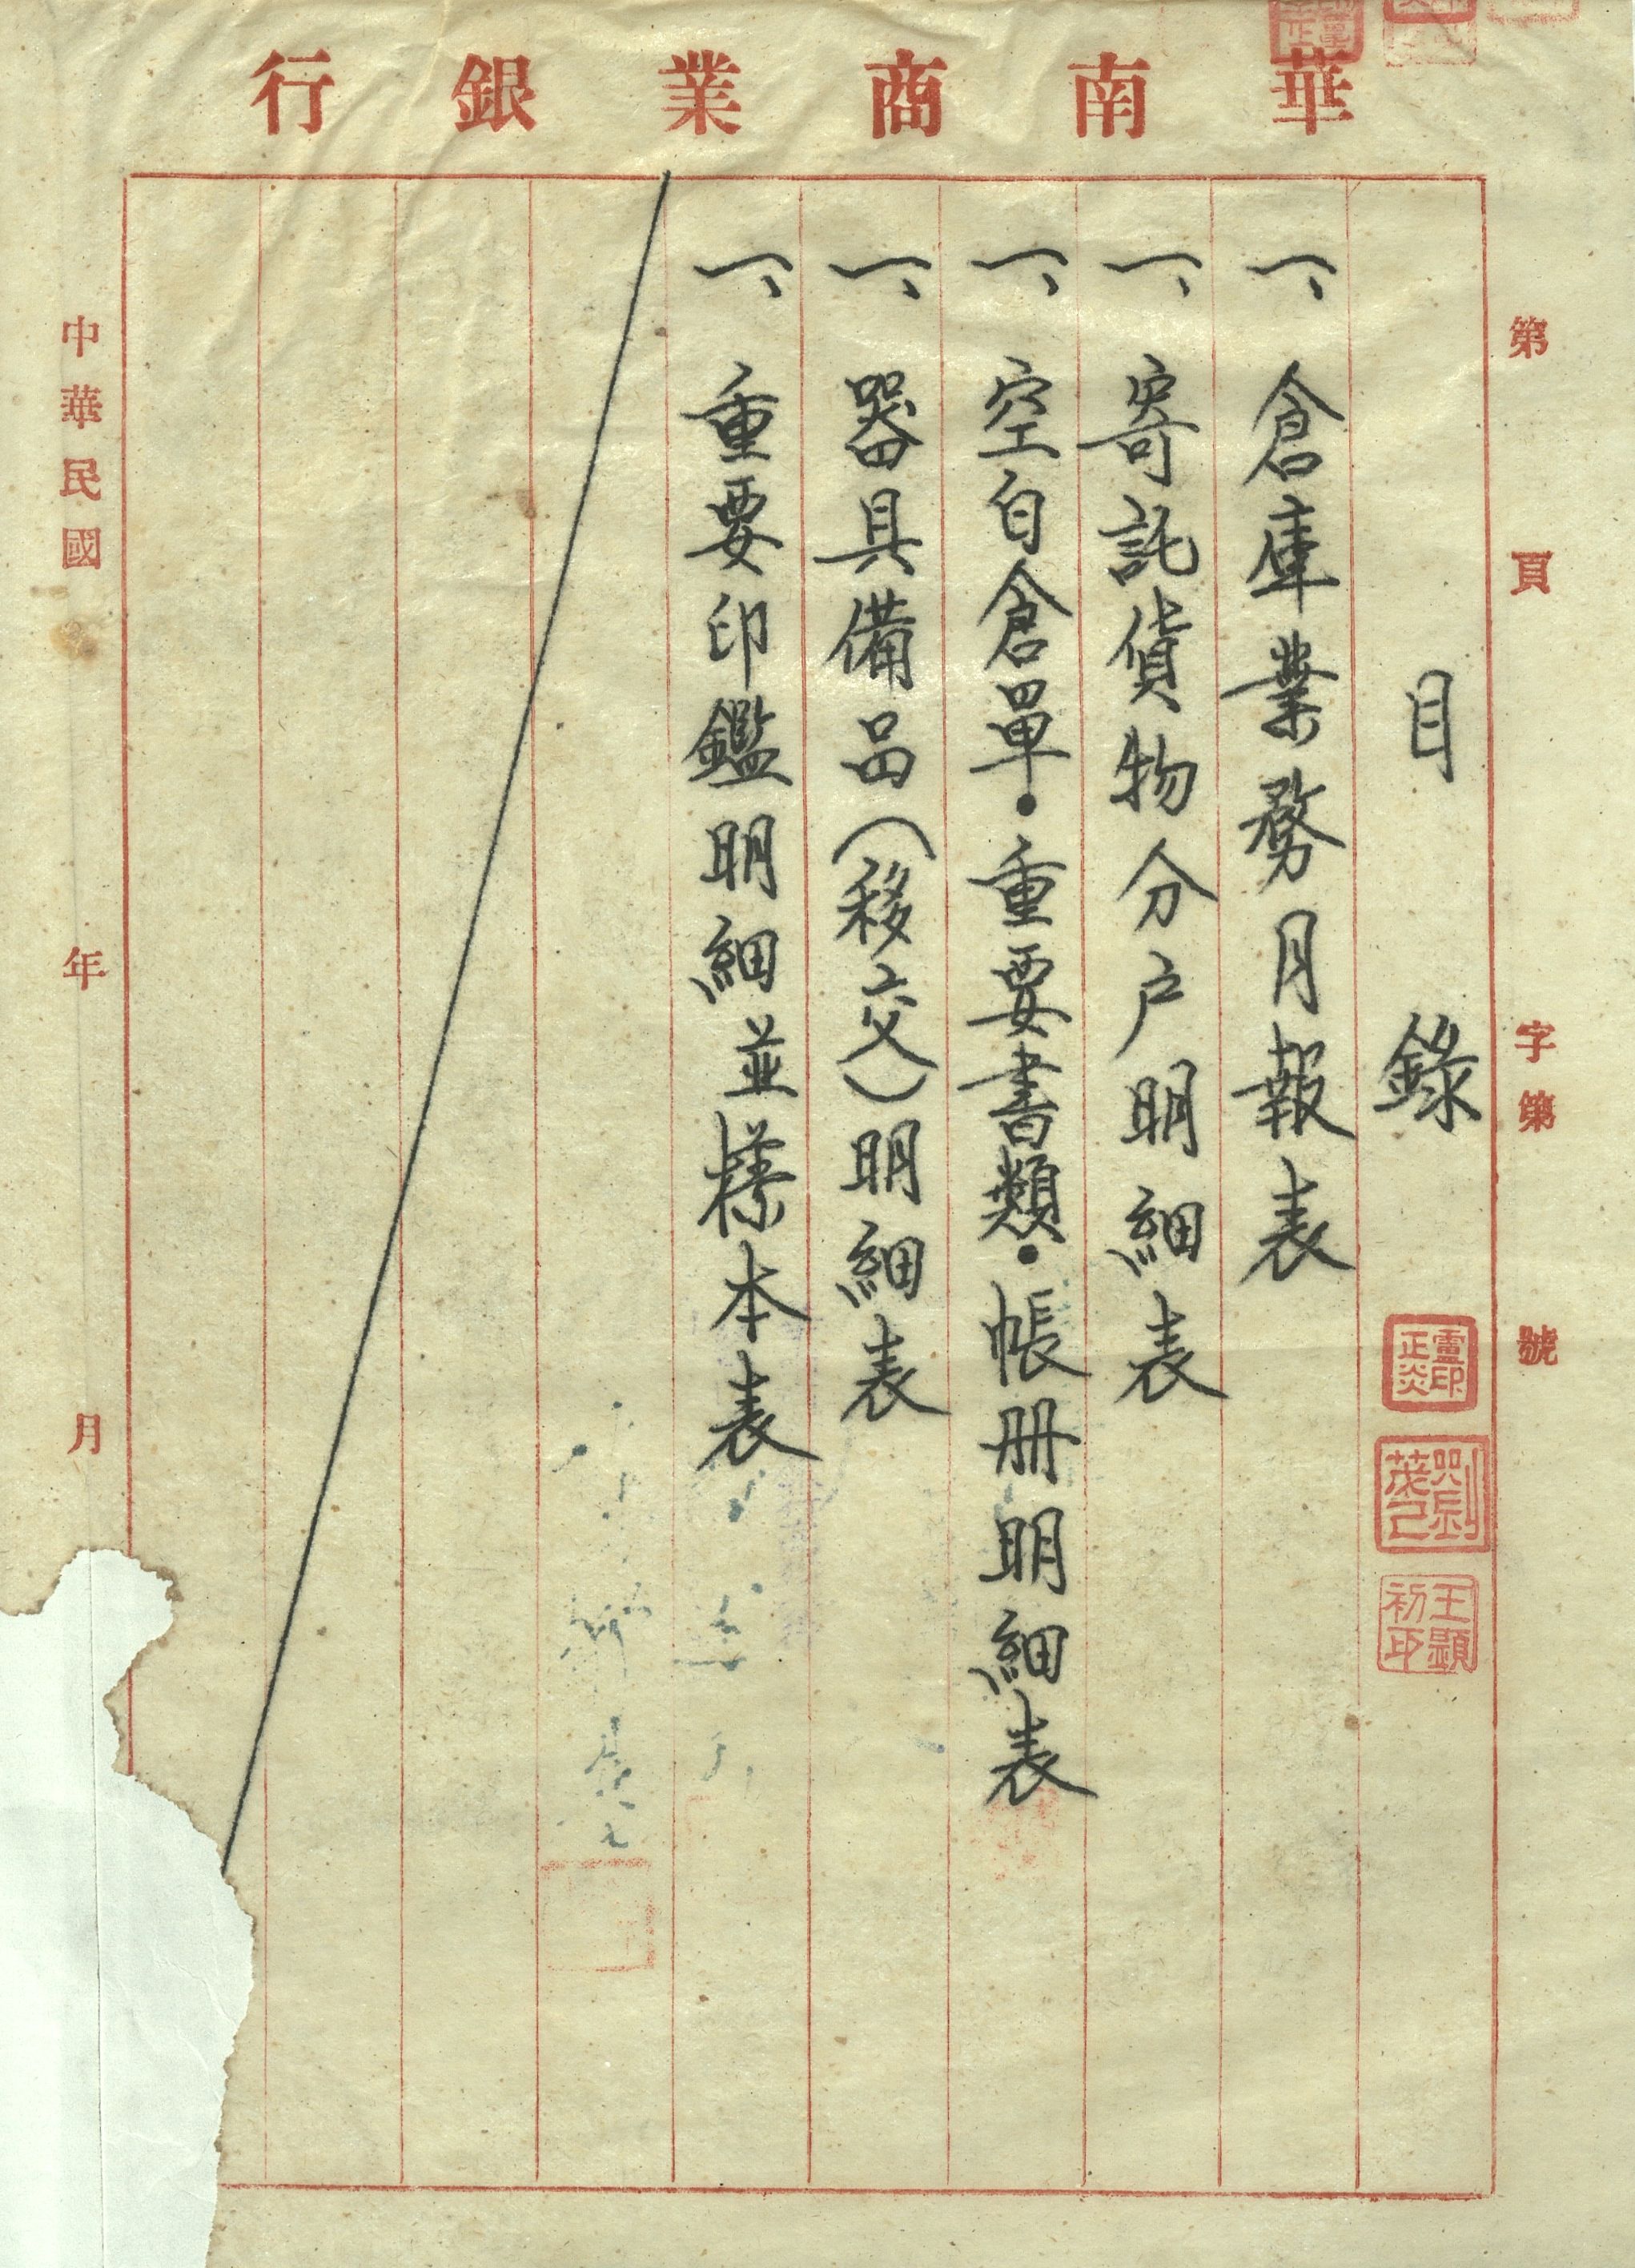 華南商業銀行
第 頁 字第 號
目錄
一、倉庫業務月報表
一、寄託貨物分戶明細表
一、空白倉單・重要書類・帳册明細表
一、器具備品(移交)明細表
一、重要印鑑明細並樣本表
中華民國 年 月
盧印正炎
王顯初印